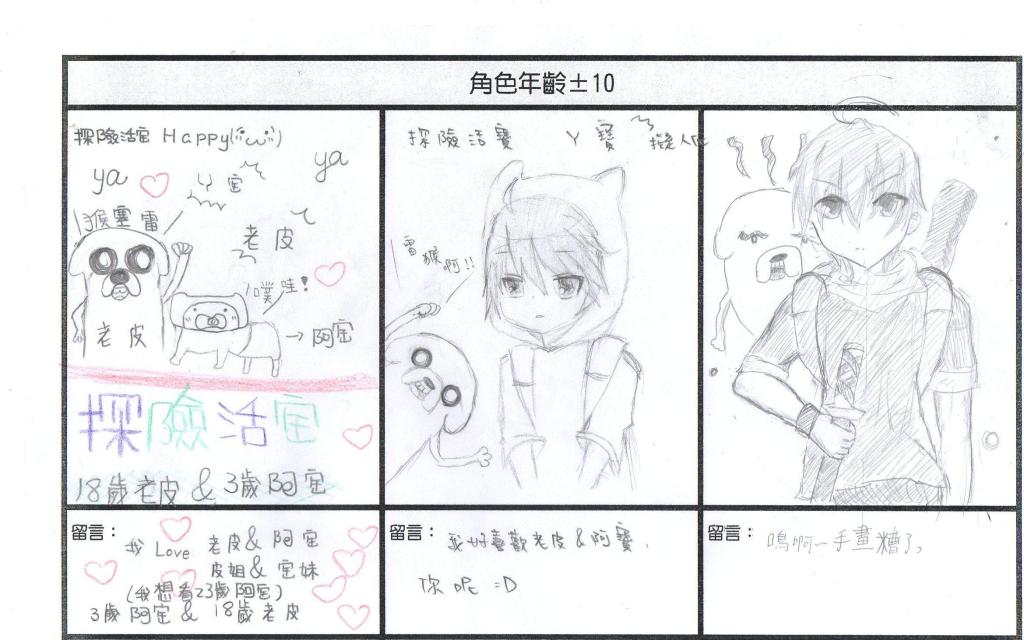 角色年齡±10
探險活宝 Happy(ˊωˋ)
ya
ya
ㄚ宝
猴塞雷
老皮
噗哇!
老皮
→阿宝
探險活宝
18歲老皮 & 3歲阿宝
探險活寶 ㄚ寶 擬人化
雷猴啊!!
留言:
我 Love 老皮 & 阿宝
皮姐 & 宝妹
(我想看23歲阿宝)
3歲阿宝 & 18歲老皮
留言:
我好喜歡老皮 & 阿寶,
你呢 =D
留言:
嗚啊~手畫糟了,